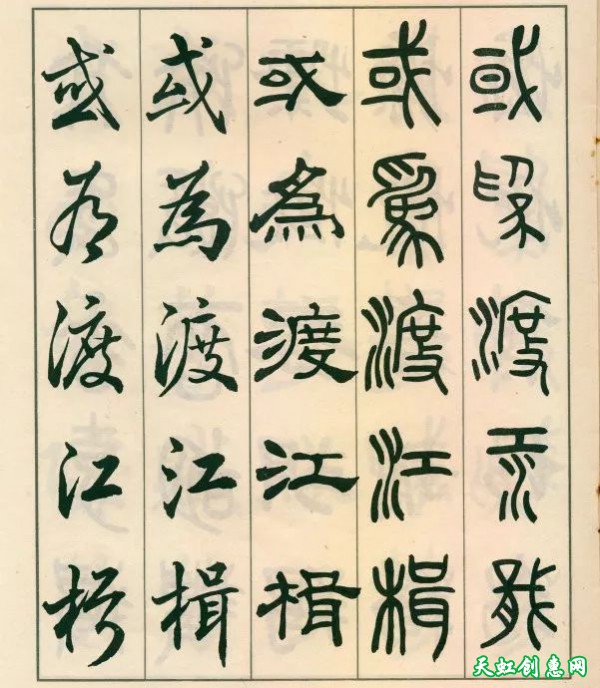 或為渡江楫
或為渡江楫
或為渡江楫
或為渡江楫
或為渡江楫
天虹创惠网